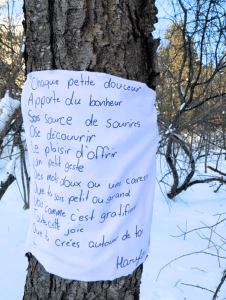 Chaque petite douceur
Apporte du bonheur
Sois source de sourires
Ose découvrir
Le plaisir d'offrir
Un petit geste
Des mots doux ou une caresse
Que tu sois petit ou grand
Vois comme c'est gratifiant
Toute cette joie
Que tu crées autour de toi